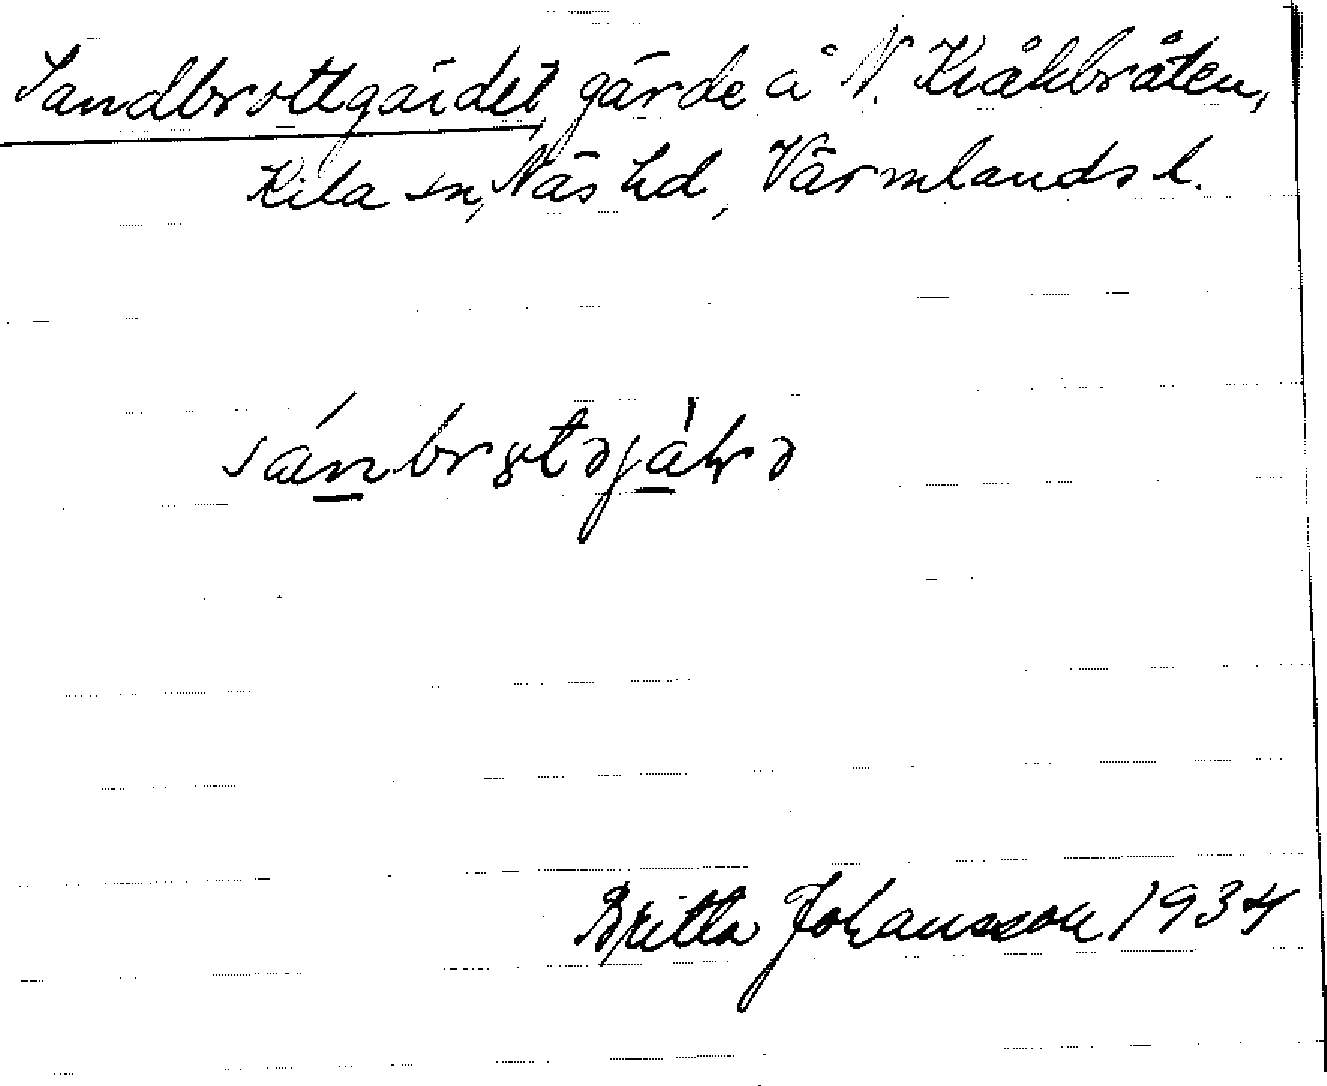 Sandbrottgärdet, gärde å N. Kråkbråten,
Kila sn, Näs hd, Värmlands l.
Britta Johansson 1934